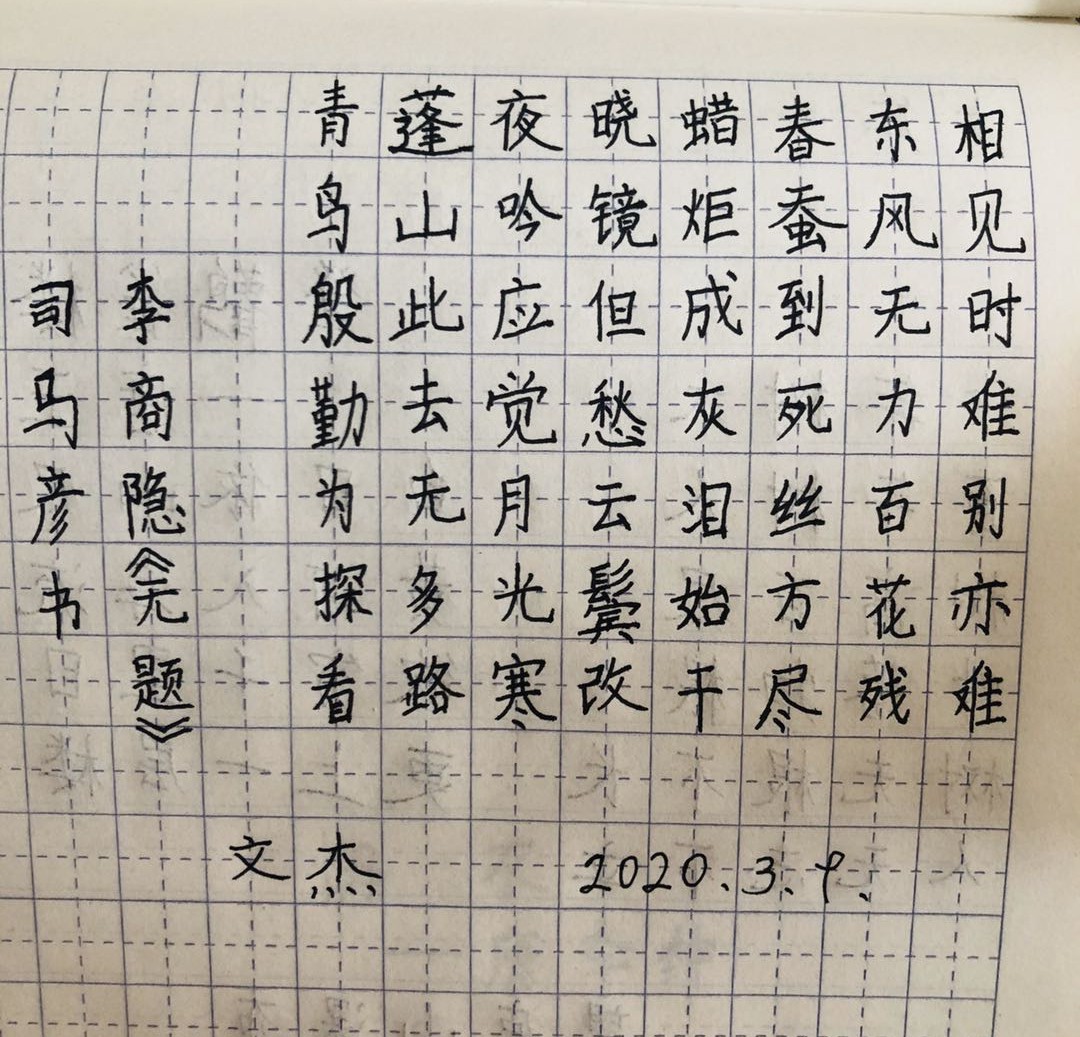 相见时难别亦难
东风无力百花残
春蚕到死丝方尽
蜡炬成灰泪始干
晓镜但愁云鬓改
夜吟应觉月光寒
蓬山此去无多路
青鸟殷勤为探看
李商隐《无题》
司马彦书
文杰 2020.3.9.